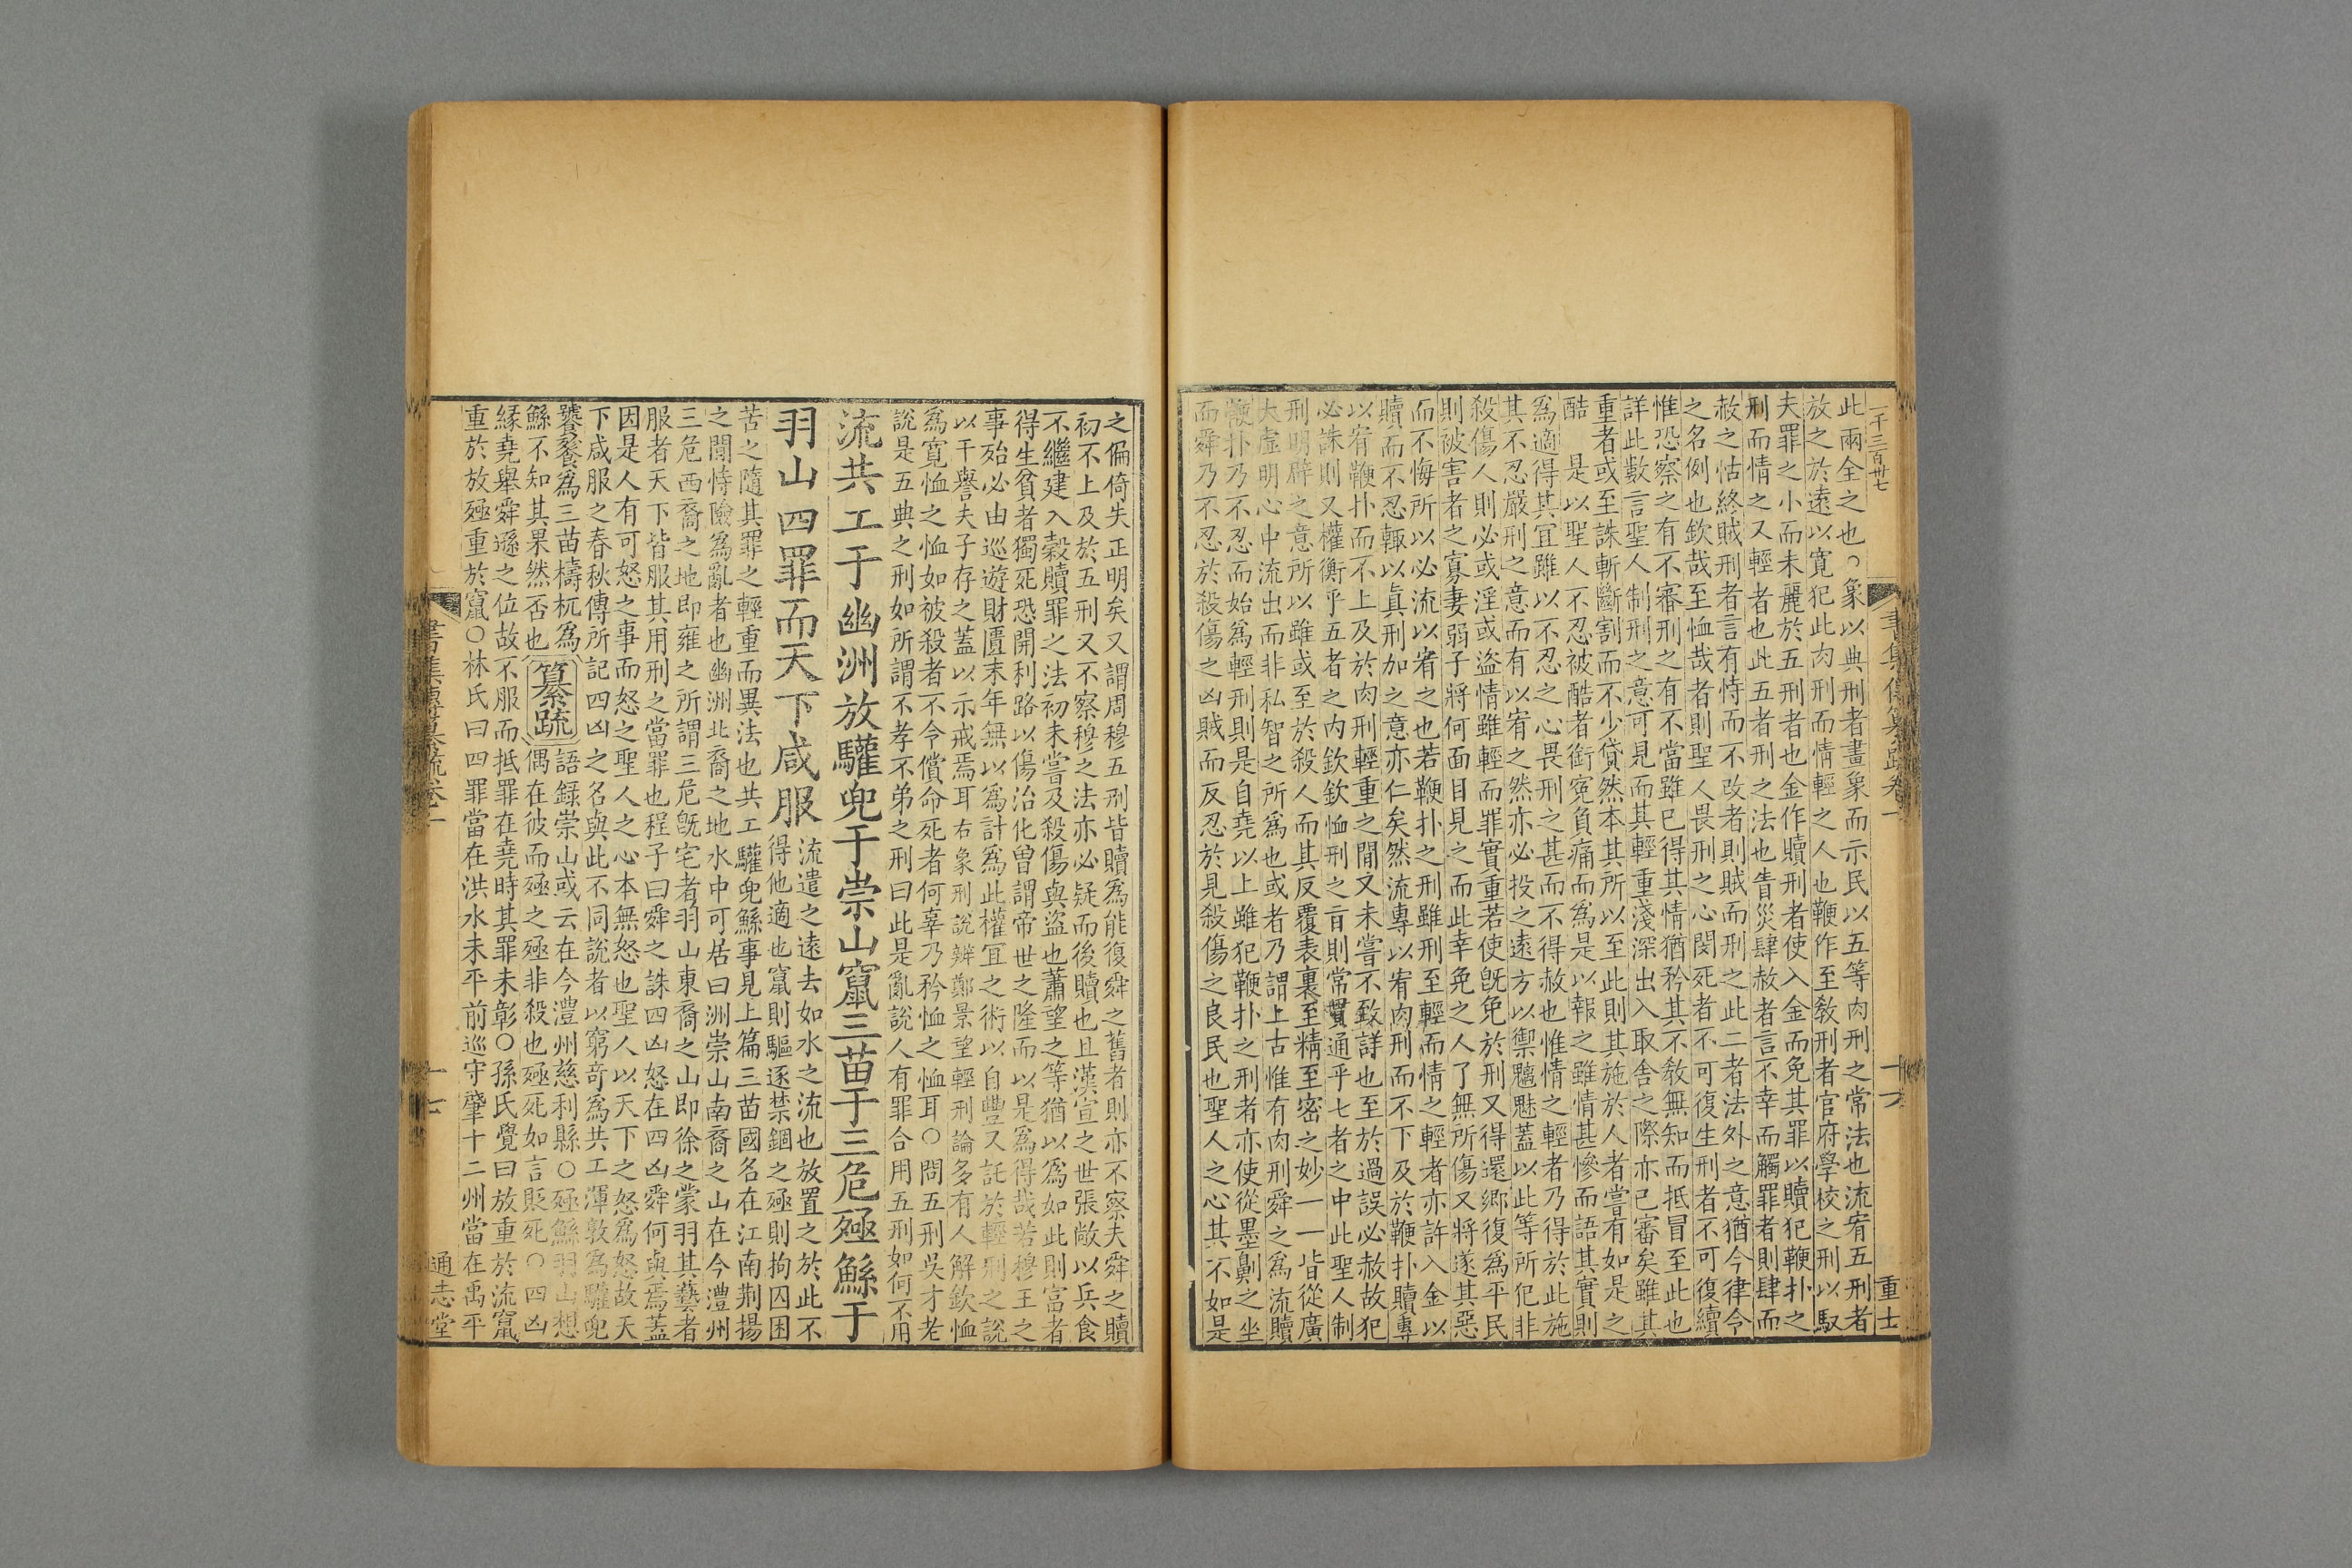 一千三百卅七
書集傳纂疏卷一
十六
重士
此兩全之也○象以典刑者畫象而示民以五等肉刑之常法也流宥五刑者
放之於遠以寬犯此肉刑而情輕之人也鞭作至敎刑者官府學校之刑以馭
夫罪之小而未麗於五刑者也金作贖刑者使入金而免其罪以贖犯鞭扑之
刑而情之又輕者也此五者刑之法也眚災肆赦者言不幸而觸罪者則肆而
赦之怙終賊刑者言有恃而不改者則賊而刑之此二者法外之意猶今律令
之名例也欽哉至恤哉者則聖人畏刑之心閔死者不可復生刑者不可復續
惟恐察之有不審刑之有不當雖已得其情猶矜其不敎無知而抵冒至此也
詳此數言聖人制刑之意可見而其輕重淺深出入取舍之際亦已審矣雖其
重者或至誅斬斷割而不少貸然本其所以至此則其施於人者嘗有如是之
酷 是以聖人不忍被酷者銜冤負痛而爲是以報之雖情甚慘而語其實則
爲適得其宜雖以不忍之心畏刑之甚而不得赦也惟情之輕者乃得於此施
其不忍嚴刑之意而有以宥之然亦必投之遠方以禦魑魅蓋以此等所犯非
殺傷人則必或淫或盜情雖輕而罪實重若使旣免於刑又得還鄉復爲平民
則被害者之寡妻弱子將何面目見之而此幸免之人了無所傷又將遂其惡
而不悔所以必流以宥之也若鞭扑之刑雖刑至輕而情之輕者亦許入金以
贖而不忍輒以眞刑加之意亦仁矣然流專以宥肉刑而不下及於鞭扑贖專
以宥鞭扑而不上及於肉刑輕重之間又未嘗不致詳也至於過誤必赦故犯
必誅則又權衡乎五者之内欽欽恤刑之旨則常貫通乎七者之中此聖人制
刑明辟之意所以雖或至於殺人而其反覆表裏至精至密之妙一一皆從廣
大虛明心中流出而非私智之所爲也或者乃謂上古惟有肉刑舜之爲流贖
鞭扑乃不忍而始爲輕刑則是自堯以上雖犯鞭扑之刑者亦使從墨劓之坐
而舜乃不忍於殺傷之凶賊而反忍於見殺傷之良民也聖人之心其不如是
之偏倚失正明矣又謂周穆五刑皆贖爲能復舜之舊者則亦不察夫舜之贖
初不上及於五刑又不察穆之法亦必疑而後贖也且漢宣之世張敞以兵食
不繼建入穀贖罪之法初未嘗及殺傷與盜也蕭望之等猶以爲如此則富者
得生貧者獨死恐開利路以傷治化曾謂帝世之隆而以是爲得哉若穆王之
事殆必由巡遊財匱末年無以爲計爲此權宜之術以自豐又託於輕刑之說
以干譽夫子存之蓋以示戒焉耳右象刑說辨鄭景望輕刑論多有人解欽恤
爲寬恤之恤如被殺者不令償命死者何辜乃矜恤之恤耳○問五刑吳才老
說是五典之刑如所謂不孝不弟之刑曰此是亂說人有罪合用五刑如何不用
流共工于幽洲放驩兜于崇山竄三苗于三危殛鯀于
羽山四罪而天下咸服
流遣之遠去如水之流也放置之於此不
得他適也竄則驅逐禁錮之殛則拘囚困
苦之隨其罪之輕重而異法也共工驩兜鯀事見上篇三苗國名在江南荆揚
之間恃險爲亂者也幽洲北裔之地水中可居曰洲崇山南裔之山在今澧州
三危西裔之地即雍之所謂三危旣宅者羽山東裔之山即徐之蒙羽其藝者
服者天下皆服其用刑之當罪也程子曰舜之誅四凶怒在四凶舜何與焉蓋
因是人有可怒之事而怒之聖人之心本無怒也聖人以天下之怒爲怒故天
下咸服之春秋傳所記四凶之名與此不同說者以窮奇爲共工渾敦爲驩兜
饕餮爲三苗檮杌爲
鯀不知其果然否也
纂疏
語錄崇山或云在今澧州慈利縣○殛鯀羽山想
偶在彼而殛之殛非殺也殛死如言貶死○四凶
緣堯舉舜遜之位故不服而抵罪在堯時其罪未彰○孫氏覺曰放重於流竄
重於放殛重於竄○林氏曰四罪當在洪水未平前巡守肇十二州當在禹平
書集傳纂疏卷一
十七
通志堂